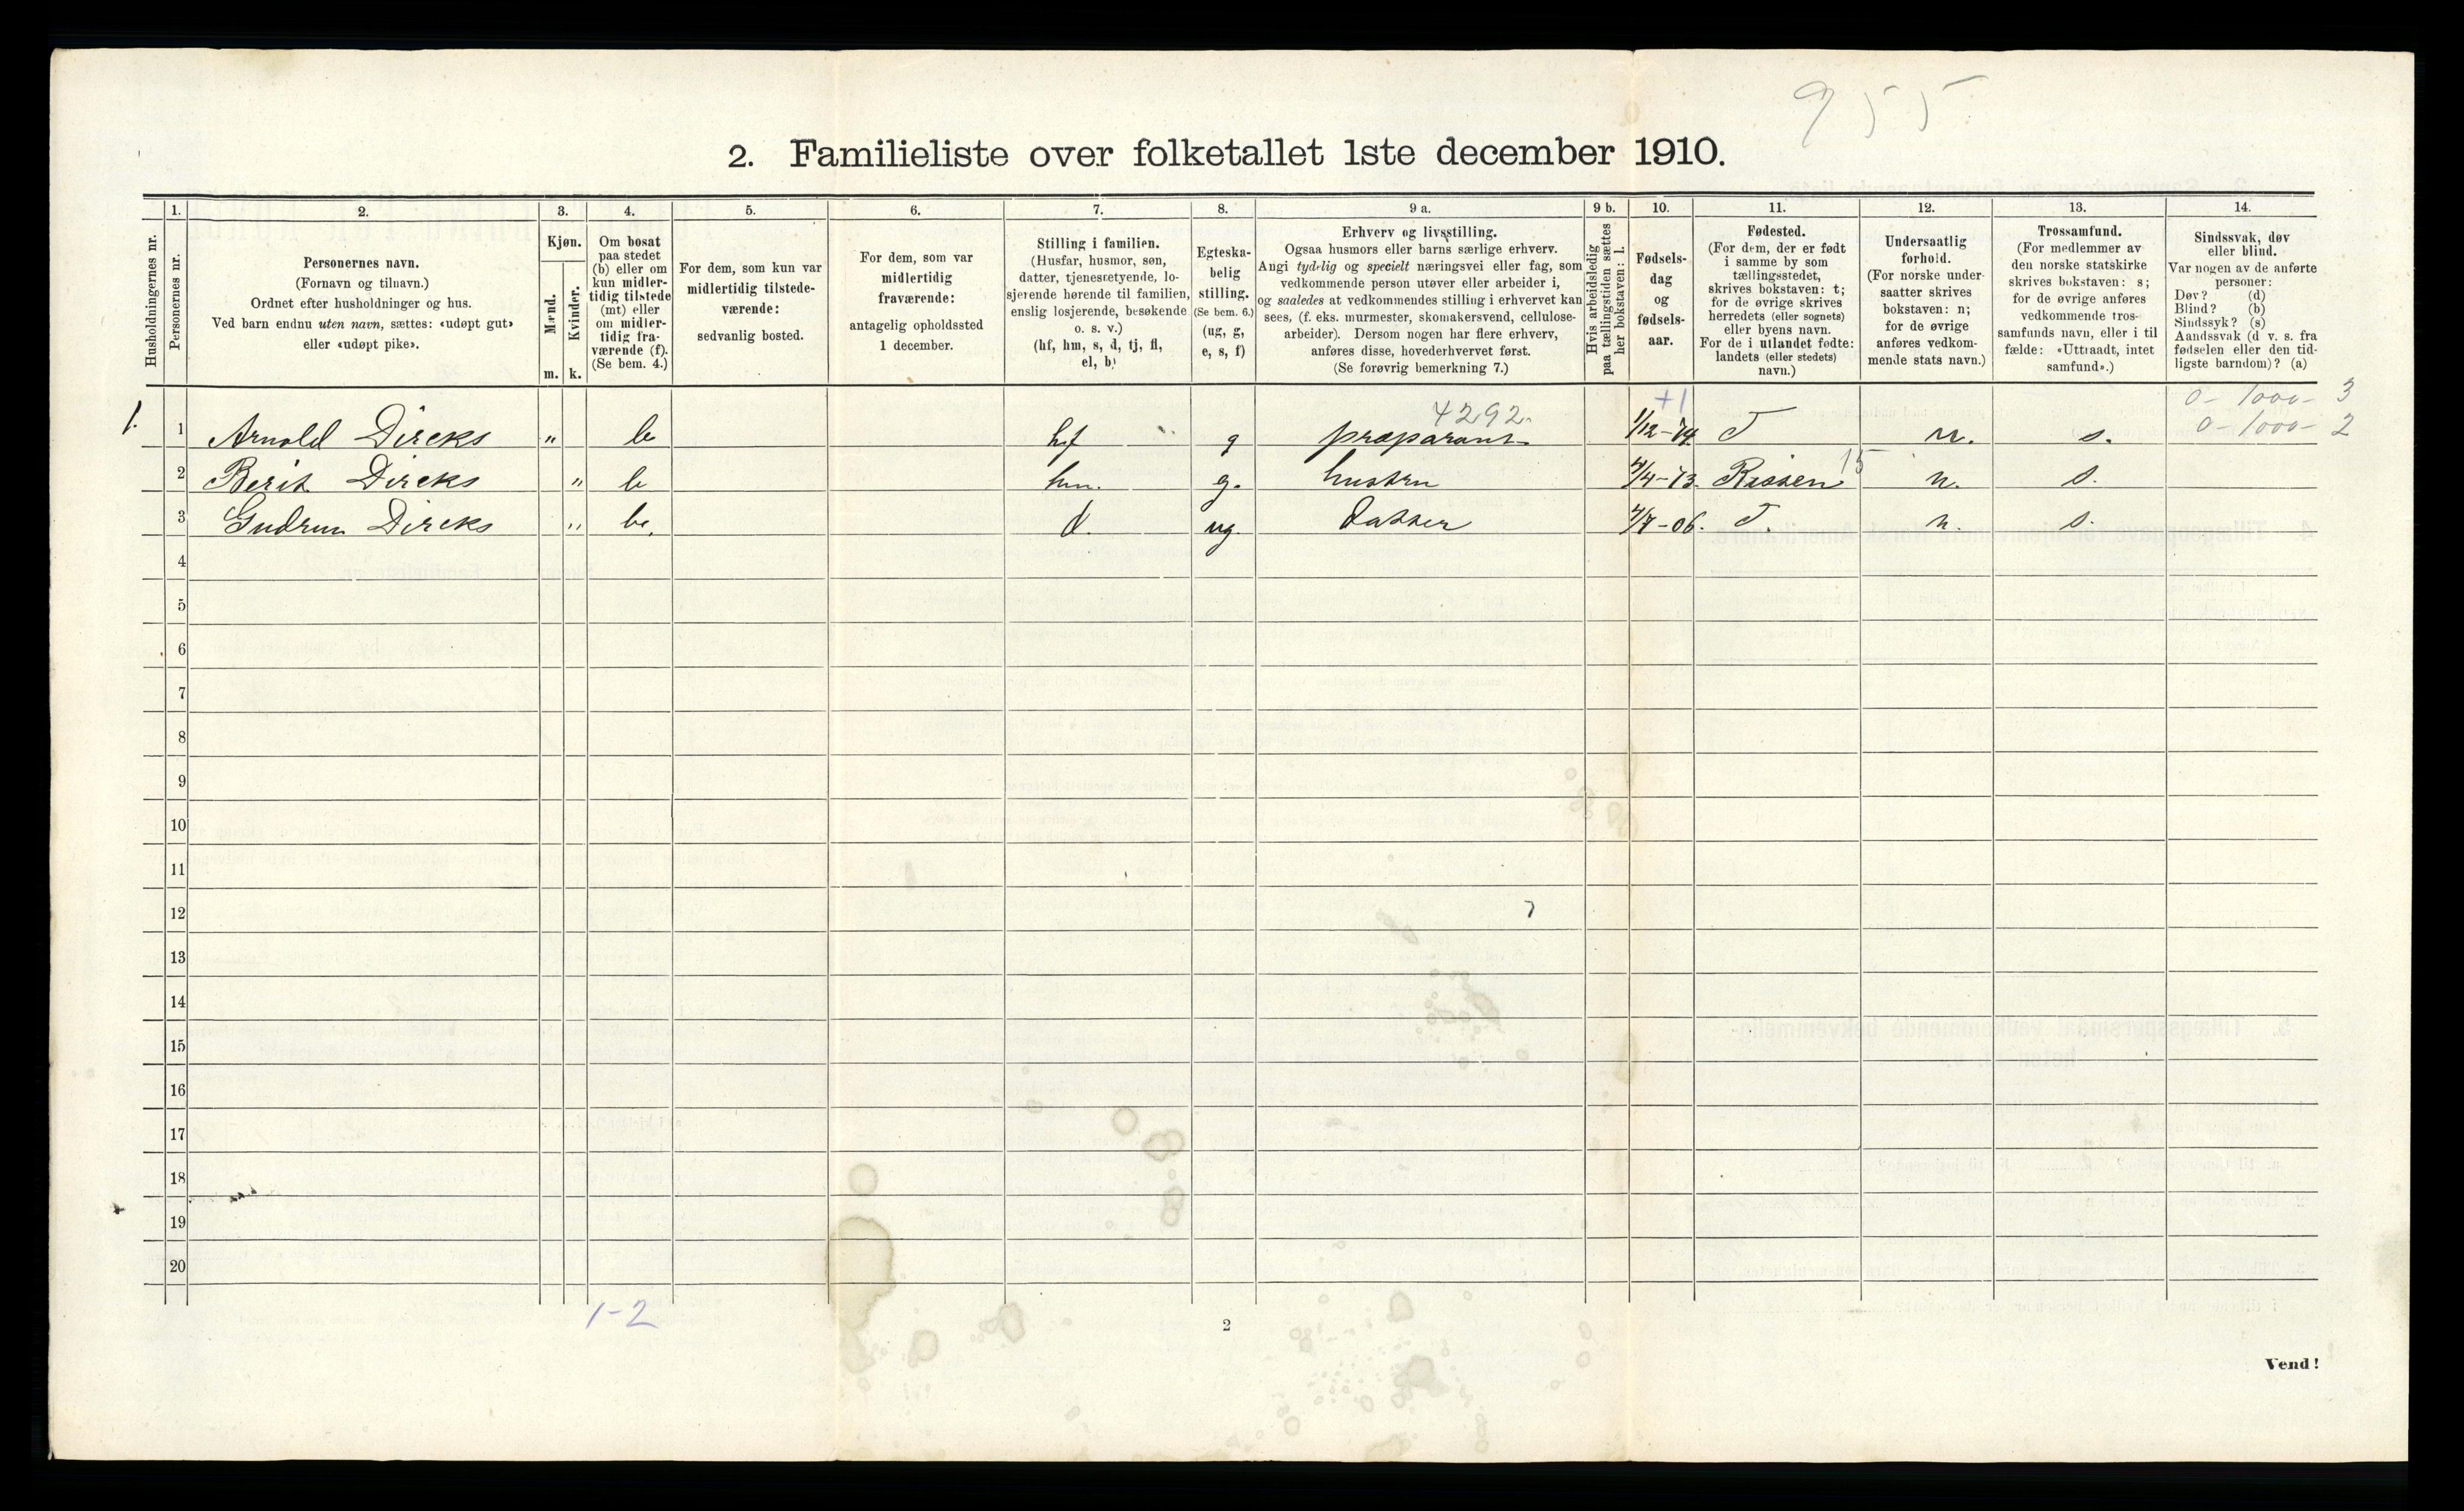 955
2. Familieliste over folketallet 1ste december 1910.
1. 2. 3. 4. 5. 6. 7. 8. 9 a. 9 b. 10. 11. 12. 13. 14.
Husholdningernes nr.
Personernes nr.
Personernes navn.
(Fornavn og tilnavn.)
Ordnet efter husholdninger og hus.
Ved barn endnu uten navn, sættes: «udøpt gut»
eller «udøpt pike».
Kjøn.
Mænd.
m.
Kvinder.
k.
Om bosat
paa stedet
(b) eller om
kun midler-
tidig tilstede
(mt) eller
om midler-
tidig fra-
værende (f).
(Se bem. 4.)
For dem, som kun var
midlertidig tilstede-
værende:
sedvanlig bosted.
For dem, som var
midlertidig
fraværende:
antagelig opholdssted
1 december.
Stilling i familien.
(Husfar, husmor, søn,
datter, tjenestetyende, lo-
sjerende hørende til familien,
enslig losjerende, besøkende
o. s. v.)
(hf, hm, s, d, tj, fl,
el, b)
Egteska-
belig
stilling.
(Se bem. 6.)
(ug, g,
e, s, f)
Erhverv og livsstilling.
Ogsaa husmors eller barns særlige erhverv.
Angi tydelig og specielt næringsvei eller fag, som
vedkommende person utøver eller arbeider i,
og saaledes at vedkommendes stilling i erhvervet kan
sees, (f. eks. murmester, skomakersvend, cellulose-
arbeider). Dersom nogen har flere erhverv,
anføres disse, hovederhvervet først.
(Se forøvrig bemerkning 7.)
Hvis arbeidsledig
paa tællingstiden sættes
her bokstaven: l.
Fødsels-
dag
og
fødsels-
aar.
Fødested.
(For dem, der er født
i samme by som
tællingsstedet,
skrives bokstaven: t;
for de øvrige skrives
herredets (eller sognets)
eller byens navn.
For de i utlandet fødte:
landets (eller stedets)
navn.)
Undersaatlig
forhold.
(For norske under-
saatter skrives
bokstaven: n;
for de øvrige
anføres vedkom-
mende stats navn.)
Trossamfund.
(For medlemmer av
den norske statskirke
skrives bokstaven: s;
for de øvrige anføres
vedkommende tros-
samfunds navn, eller i til
fælde: «Uttraadt, intet
samfund».)
Sindssvak, døv
eller blind.
Var nogen av de anførte
personer:
Døv? (d)
Blind? (b)
Sindssyk? (s)
Aandssvak (d v. s. fra
fødselen eller den tid-
ligste barndom)? (a)
4292. +1 0 - 1000 - 3
0 - 1000 - 2
1. 1 Arnold Dircks " b hf g præparant 1/12-74. T n. s.
2 Berit Dircks " b hm. g. hustru 4/4-73. Rissen 15 n. s.
3 Gudrun Dircks " b. d. ug. datter 4/7-06. T. n. s.
4
5
6
7
8
9
10
11
12
13
14
15
16
17
18
19
20
1-2
2
Vend!